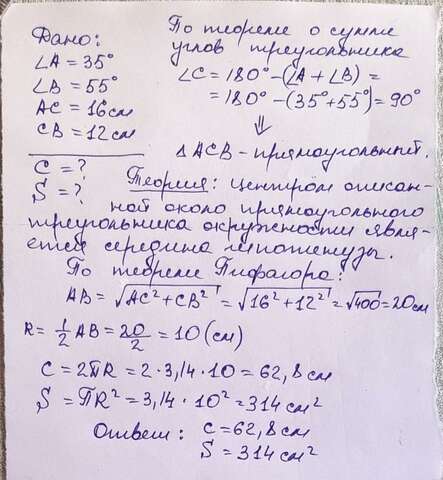 Дано:
∠A = 35°
∠B = 55°
AC = 16 см
CB = 12 см
C = ?
S = ?
По теореме о сумме
углов треугольника
∠C = 180° – (∠A + ∠B) =
= 180° – (35° + 55°) = 90°
⇓
△ ACB – прямоугольный.
Теория: центром описан-
ной около прямоугольного
треугольника окружности явля-
ется середина гипотенузы.
По теореме Пифагора:
AB = √(AC² + CB²) = √(16² + 12²) = √400 = 20 см
R = 1/2 AB = 20/2 = 10 (см)
C = 2πR = 2 · 3,14 · 10 = 62,8 см
S = πR² = 3,14 · 10² = 314 см²
Ответ: C = 62,8 см
S = 314 см²